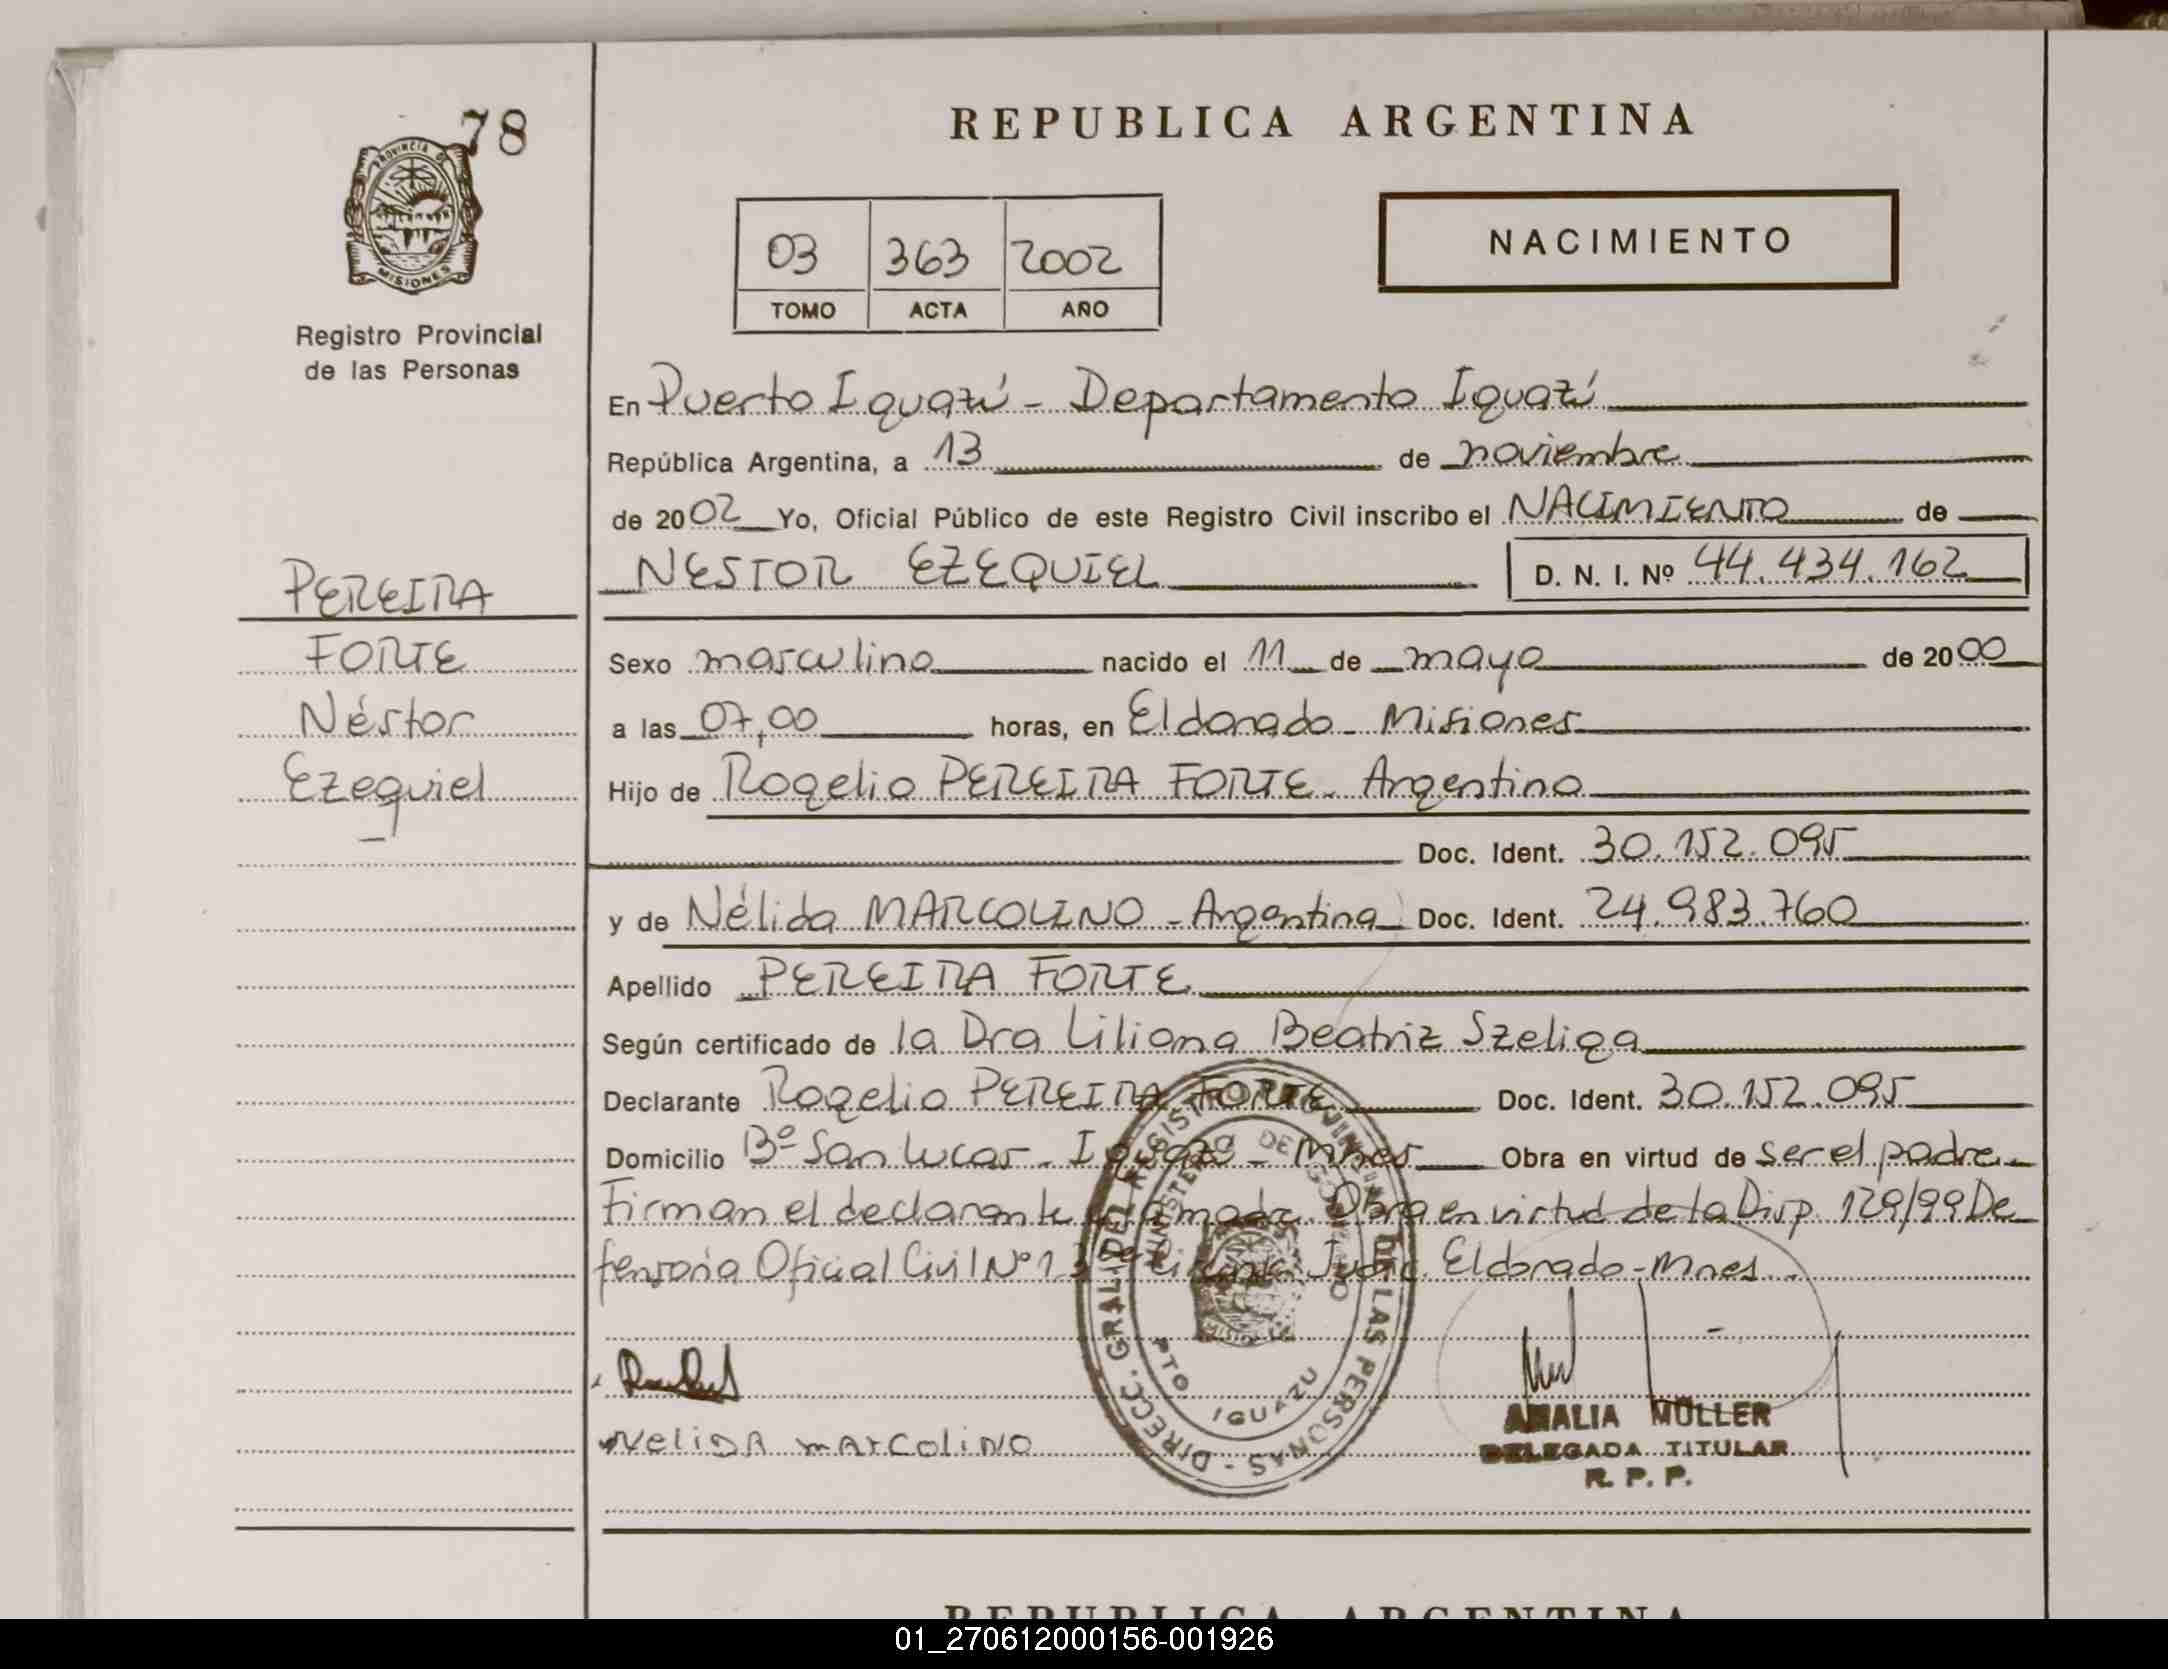 78
PROVINCIA DE
MISIONES
Registro Provincial
de las Personas
PEREIRA
FORTE
Néstor
Ezequiel
REPUBLICA ARGENTINA
03 363 2002
TOMO ACTA AÑO
NACIMIENTO
En Puerto Iguazú - Departamento Iguazú
República Argentina, a 13 de noviembre
de 2002 Yo, Oficial Público de este Registro Civil inscribo el NACIMIENTO de
NESTOR EZEQUIEL D. N. I. Nº 44.434.162
Sexo masculino nacido el 11 de mayo de 2000
a las 07,00 horas, en Eldorado - Misiones
Hijo de Rogelio PEREIRA FORTE - Argentino
Doc. Ident. 30.152.095
y de Nélida MARCOLINO - Argentina Doc. Ident. 24.983.760
Apellido PEREIRA FORTE
Según certificado de la Dra Liliana Beatriz Szeliga
Declarante Rogelio PEREIRA FORTE Doc. Ident. 30.152.095
Domicilio Bº San Lucas - Iguazú - Mnes Obra en virtud de ser el padre
Firman el declarante madre. Obra en virtud de la Disp. 129/99 De
fensoria Oficial Civil Nº 1 Judic. Eldorado - Mnes.
DIRECC. GRAL. DEL REGISTRO PROVINCIAL DE LAS PERSONAS -
MINISTERIO DE GOBIERNO
MISIONES
PTO IGUAZU
NeliDA mArcoliNO
AMALIA MULLER
DELEGADA TITULAR
R. P. P.
REPUBLICA ARGENTINA
01_270612000156-001926